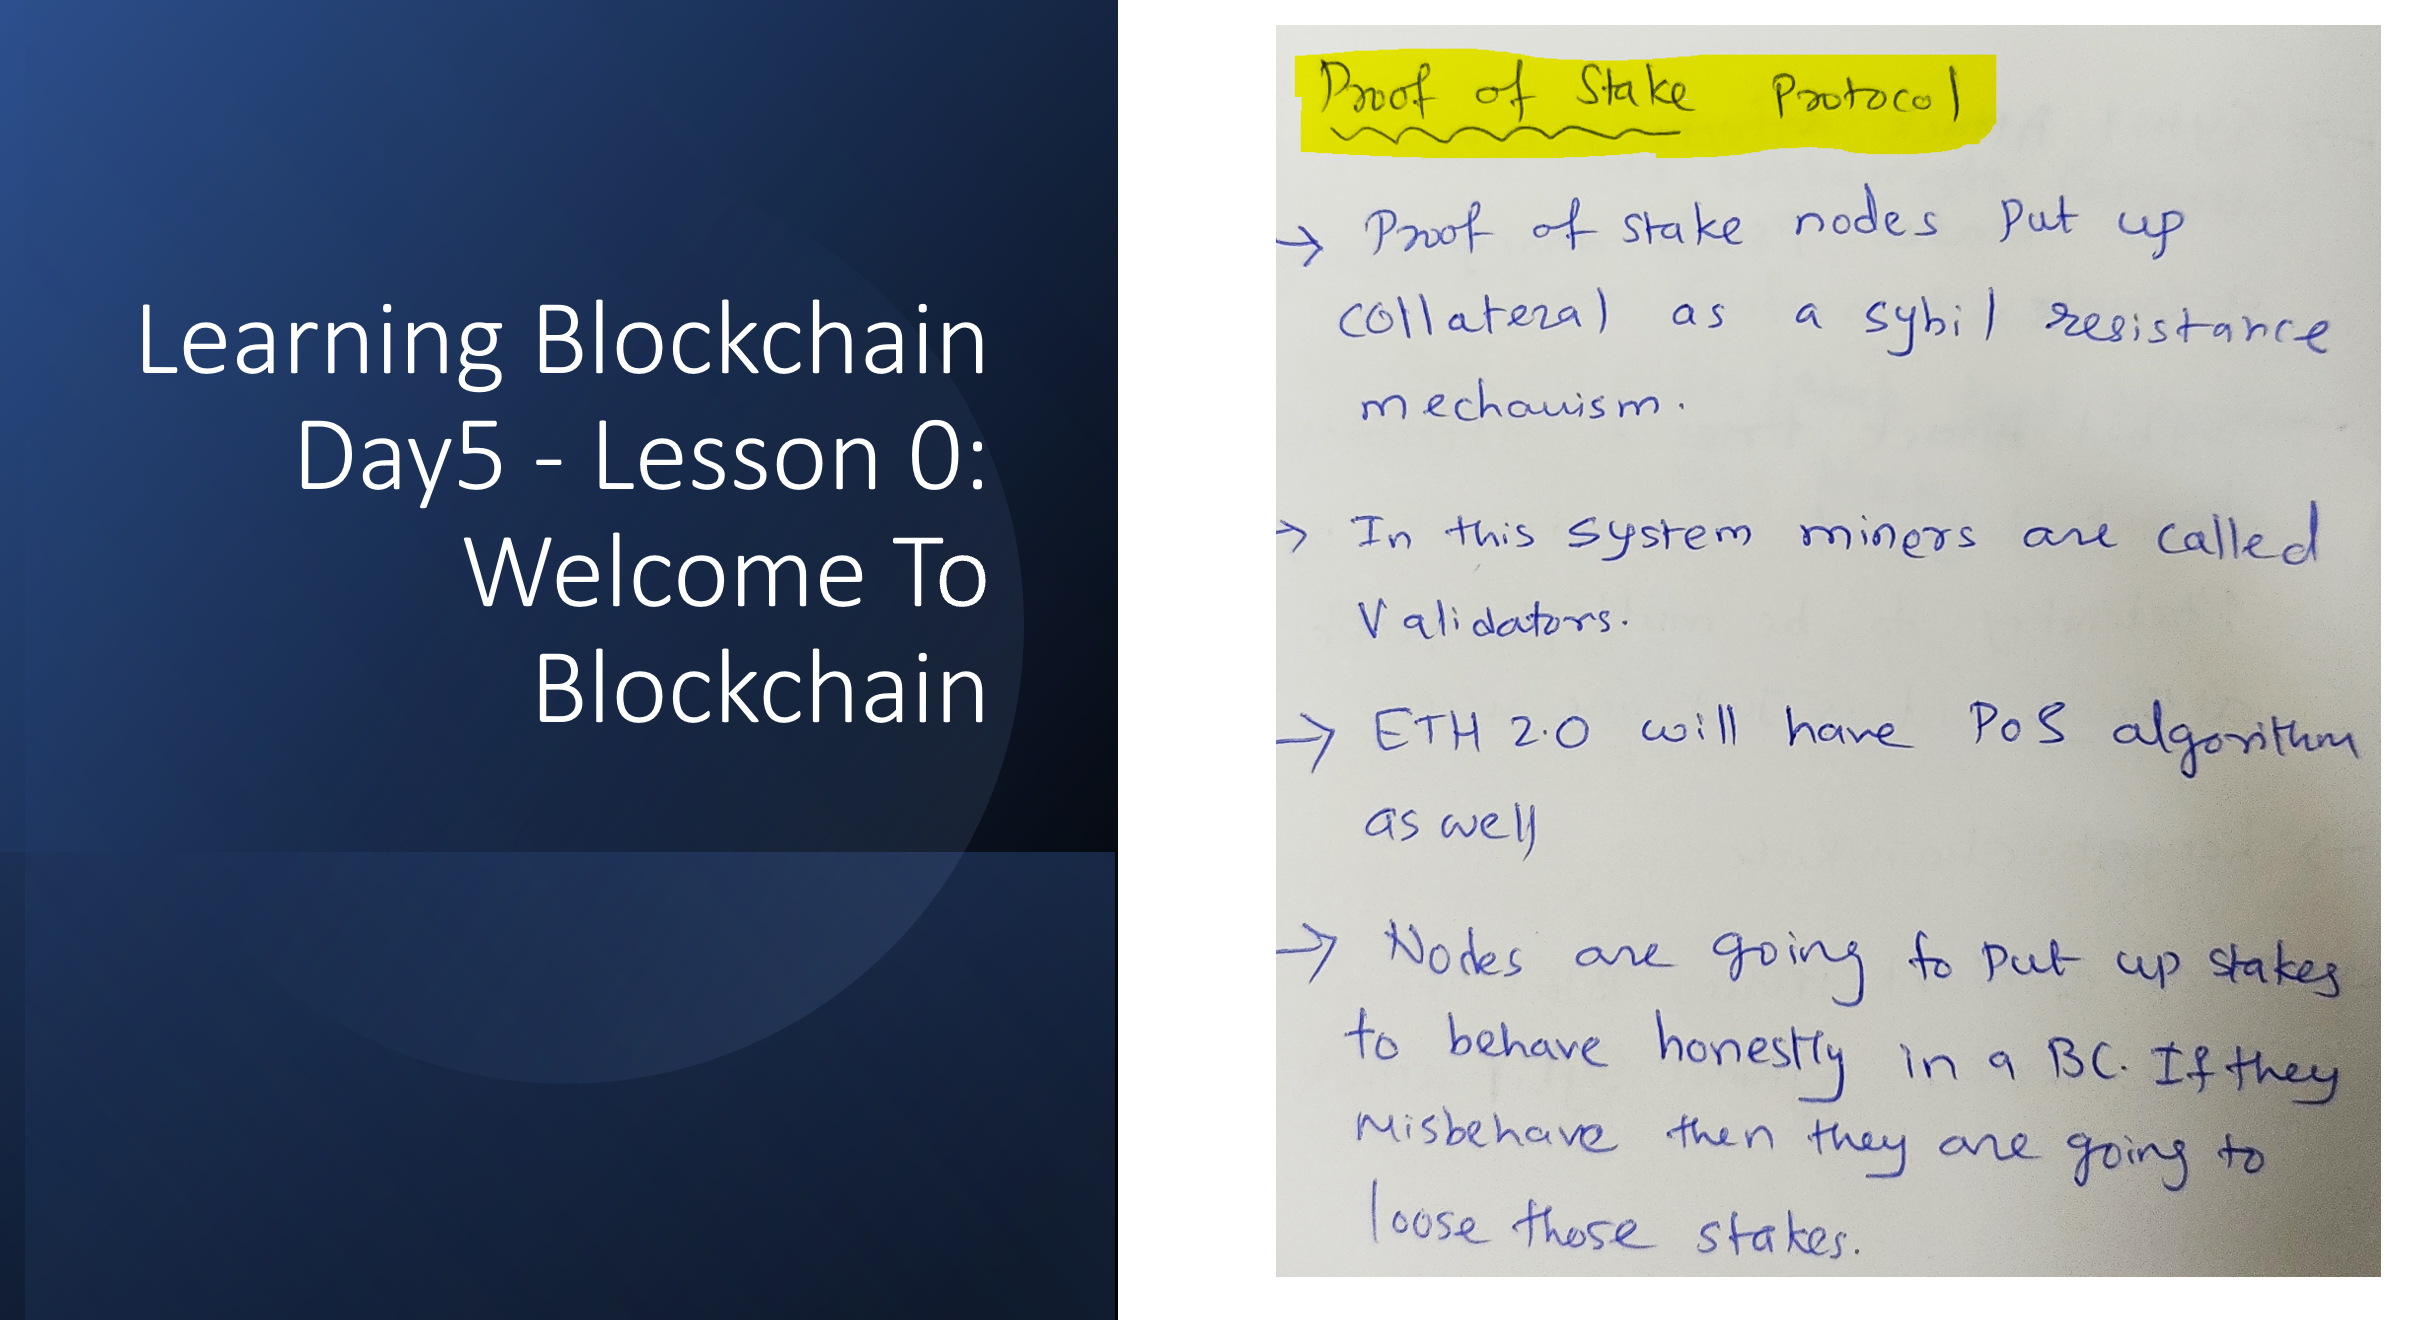 Learning Blockchain
Day5 - Lesson 0:
Welcome To
Blockchain
Proof of Stake Protocol
→ Proof of stake nodes put up
collateral as a sybil resistance
mechanism.
→ In this system miners are called
Validators.
→ ETH 2.0 will have PoS algorithm
as well
→ Nodes are going to put up stakes
to behave honestly in a BC. If they
misbehave then they are going to
loose those stakes.